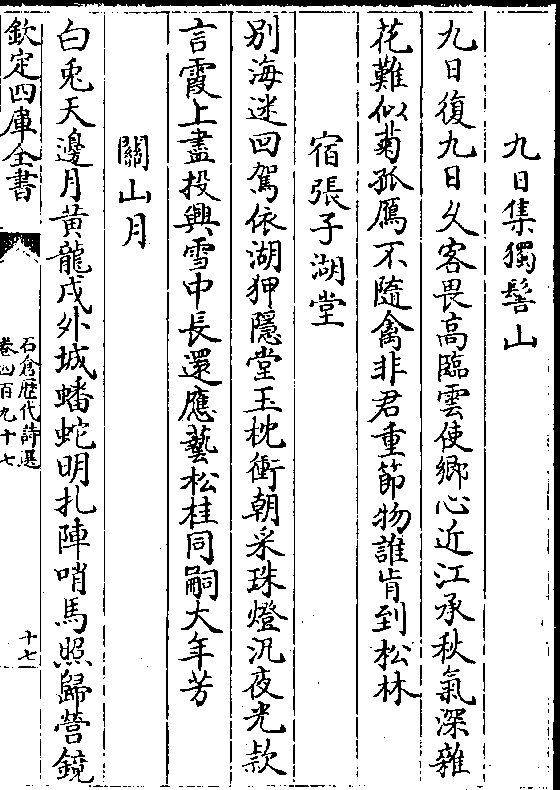 九日集獨髻山
九日復九日久客畏高臨雲使鄉心近江承秋氣深雜
花難似菊孤鴈不隨禽非君重節物誰肯到松林
宿張子湖堂
別海迷回駕依湖狎隱堂玉枕衝朝采珠燈汎夜光款
言霞上盡投興雪中長還應藝松桂同嗣大年芳
關山月
白兎天邊月黃龍戍外城蟠蛇明扎陣哨馬照歸營鏡
欽定四庫全書
石倉歴代詩選
卷四百九十七
十七